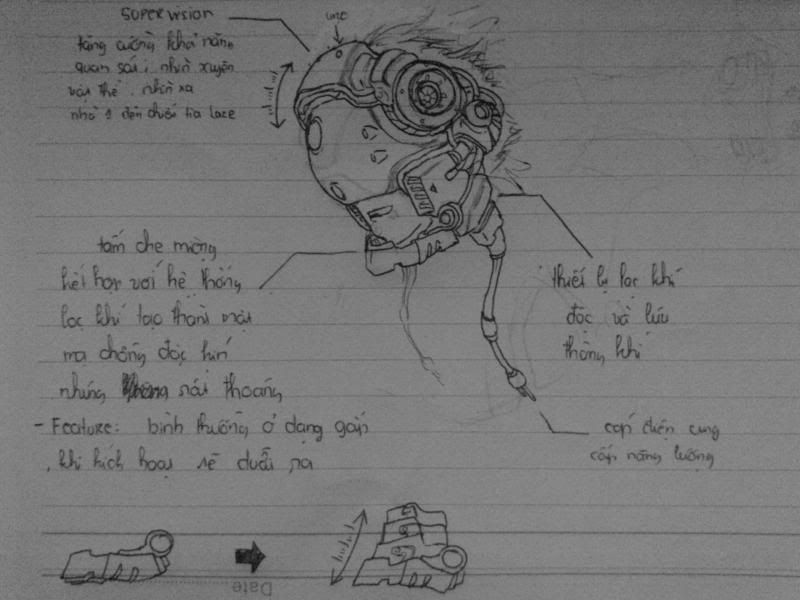 SUPERVISION
tăng cường khả năng
quan sát, nhìn xuyên
vật thể, nhìn xa
nhờ 1 đến chiếc tia laze
tấm che miệng
kết hợp với hệ thống
lọc khí tạo thành mặt
nạ chống độc kín
nhưng rất thoáng
- Feature: bình thường ở dạng gấp
, khi kích hoạt sẽ duỗi ra
thiết bị lọc khí
độc và lưu
thông khí
cáp điện cung
cấp năng lượng
Date